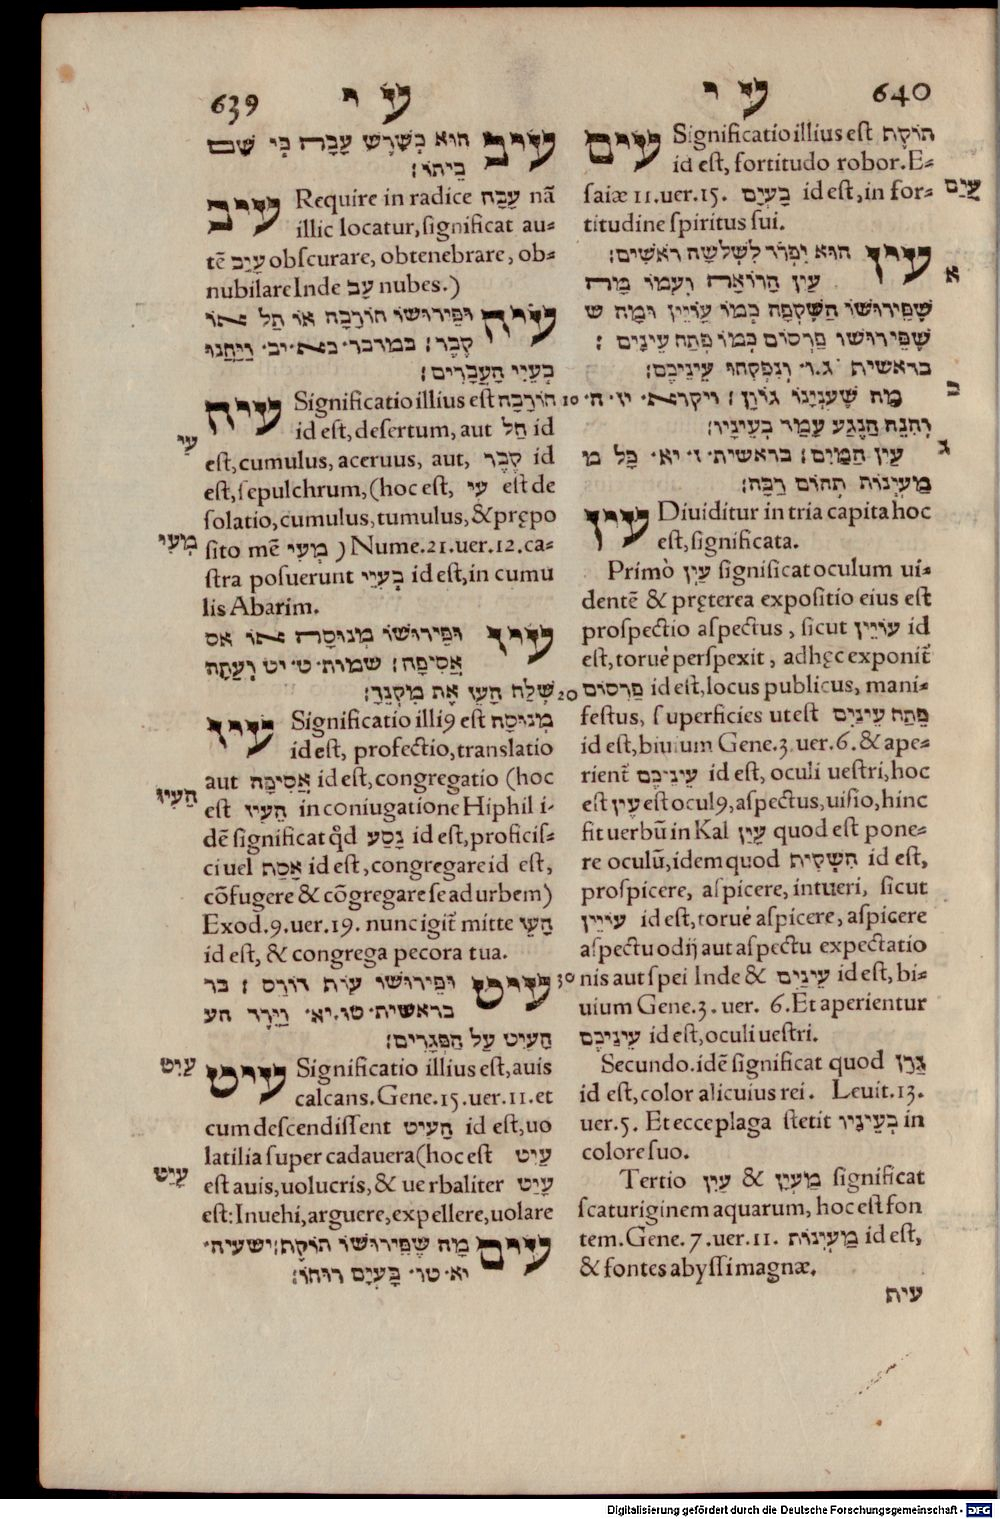 639 ע י
עיב הוא בשרש עבה כי שם
ביתו:
עיב Require in radice עבה nã
illic locatur, ſignificat au-
tẽ עיב obſcurare, obtenebrare, ob-
nubilare Inde עב nubes.)
עיה ופירושו חורבה או תל או
קבר: במדבר כא יב ויחנו
בעיי העברים:
עיה Significatio illius eſt חורבה
id eſt, deſertum, aut תל id
עי
eſt, cumulus, aceruus, aut, קבר id
eſt, ſepulchrum, (hoc eſt, עי eſt de
ſolatio, cumulus, tumulus, & prępo
מעי
ſito mẽ מעי ) Nume. 21. uer. 12. ca-
ſtra poſuerunt בעיי id eſt, in cumu
lis Abarim.
עיז ופירושו מנוסה או אס
אסיפה: שמות ט יט ועתה
שלח העז את מקנך:
עיז Significatio illi9 eſt מנוסה
id eſt, profectio, translatio
aut אסיפה id eſt, congregatio (hoc
העיז
eſt העיז in coniugatione Hiphil i-
dẽ ſignificat qd נסע id eſt, proficiſ-
ci uel אסף id eſt, congregare id eſt,
cõfugere & cõgregare ſe ad urbem)
Exod. 9. uer. 19. nunc igit mitte העז
id eſt, & congrega pecora tua.
עיט ופירושו עוף דורס : בר
בראשית טו יא וירד הע
העיט על הפגרים:
עיט
עיט Significatio illius eſt, auis
calcans. Gene. 15. uer. 11. et
cum deſcendiſſent העיט id eſt, uo
latilia ſuper cadauera (hoc eſt עיט
עיט
eſt auis, uolucris, & ue rbaliter עיט
eſt: Inuehi, arguere, expellere, uolare
עים מה שפירושו חוזק: ישעיה
יא טו בעים רוחו:
ע י 640
עים Significatio illius eſt חוזק
id eſt, fortitudo robor. E-
עים
ſaiæ 11. uer. 15. בעים id eſt, in for-
titudine ſpiritus ſui.
עין הוא יפרד לשלשה ראשים:
א
עין הרואה ועמו מה
שפירושו השקפה כמו עויין ומה ש
שפירושו פרסום כמו פתח עינים :
בראשית ג ו ותפקחנה עיניכם:
ב
10 מה שענינו גוון: ויקרא יג ה
והנה הנגע עמד בעיניו:
ג
עין המים: בראשית ז יא כל מ
מעינות תהום רבה:
עין Diuiditur in tria capita hoc
eſt, ſignificata.
Primò עין ſignificat oculum ui-
dentẽ & pręterea expoſitio eius eſt
proſpectio aſpectus, ſicut עויין id
eſt, toruè perſpexit, ad hęc exponit
20 פרסום id eſt, locus publicus, mani-
feſtus, ſuperficies ut eſt פתח עינים
id eſt, biuium Gene. 3. uer. 6. & ape-
rient עיניכם id eſt, oculi ueſtri, hoc
eſt עין eſt ocul9, aſpectus, uiſio, hinc
fit uerbũ in Kal עין quod eſt pone-
re oculũ, idem quod השקיף id eſt,
proſpicere, aſpicere, intueri, ſicut
עויין id eſt, toruè aſpicere, aſpicere
aſpectu odij aut aſpectu expectatio
30 nis aut ſpei Inde & עינים id eſt, bi-
uium Gene. 3. uer. 6. Et aperientur
עיניכם id eſt, oculi ueſtri.
Secundo. idẽ ſignificat quod גון
id eſt, color alicuius rei. Leuit. 13.
uer. 5. Et ecce plaga ſtetit בעיניו in
colore ſuo.
Tertio עין & מעין ſignificat
ſcaturiginem aquarum, hoc eſt fon
tem. Gene. 7. uer. 11. מעינות id eſt,
& fontes abyſſi magnæ.
עית
Digitalisierung gefördert durch die Deutsche Forschungsgemeinschaft - DFG